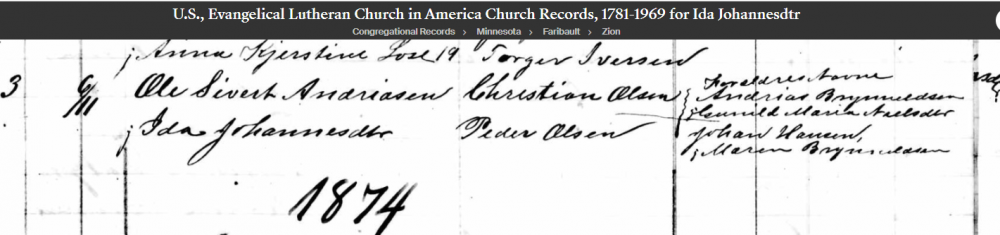 U.S., Evangelical Lutheran Church in America Church Records, 1781-1969 for Ida Johannesdtr
Congregational Records > Minnesota > Faribault > Zion
; Anna Kjerstine 19 Torger Iversen
3 6/11 Ole Sivert Andriasen Christian Olsen { Foraldres Navne Andrias Brynneldsen
; Gunild Maria
; Ida Johannesdtr Peder Olsen Johan Hansen,
; Maren Brynneldsen
1874